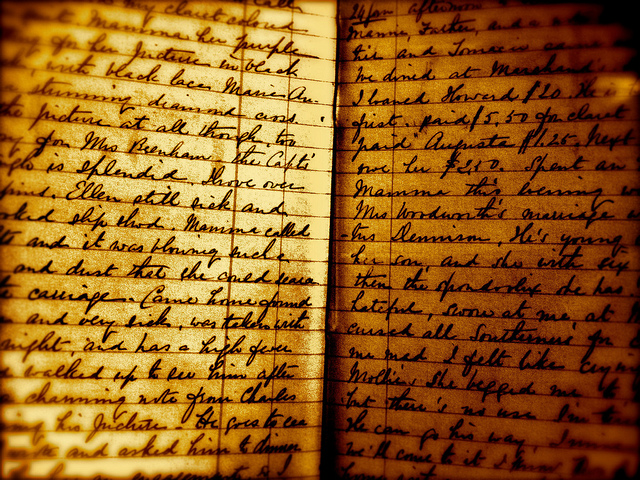 my claret colored
Mamma her purple
for her picture in black
with black lace. Marie An-
stunning diamond cross.
the picture at all though too
for Mrs Benham, the Capt's
is splendid. Drove over
Ellen still sick and
slip shod. Mamma called
and it was blowing such a
and dust that she could scarce
carriage. Came home found
and very sick, was taken with
night, and has a high fever
walked up to see him after
charming note from Charles
his picture. He goes to
and asked him to dinner
24 Jan afternoon
Mamma, Father, and
and
We dined at
I loaned Howard $20. He is
first. paid $5.50 for claret
paid Augusta $1.25. Next
owe her $2.50. Spent an
Mamma this evening
Mrs Woodworth's marriage
Dennison, He's young
her son, and she with six
then the spondoolix she has
hateful, swore at me, at
cursed all Southerners for
me mad I felt like crying
Mollie. She begged me to
but there's no use I'm
He can go his way,
we'll come to it I know